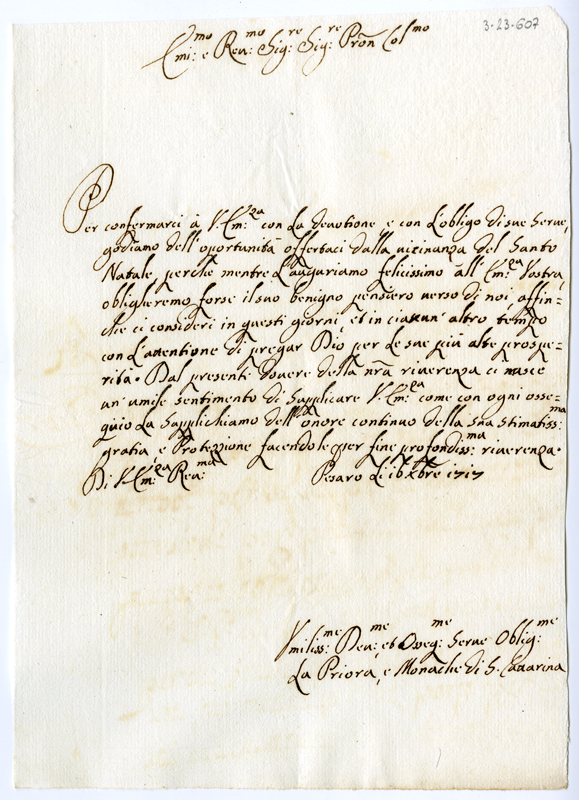 3-23-607
Emi:mo e Reu:mo Sig:re Sig:re Pròn Colmo
Per confermarci à V. Em:za con la deuotione e con L'obligo di sue Serue,
godiamo dell'oportunità offertaci dalla uicinanza del Santo
Natale, perche mentre L'auguriamo felicissimo all'Em:za Vostra,
obligheremo forse il suo benigno pensiero uerso di noi, affin=
che ci consideri in questi giorni, et in ciascun' altro tempo
con L'attentione di pregar Dio per le sue più alte prospe=
rità. Dal presenti douere della nrã riuerenza ci nasce
un' umile sentimento di supplicare V. Em:za come con ogni osse=
quio La supplichiamo dell'onore continuo della sua stimatiss:ma
gratia e Protezzione facendole per fine profondiss:ma riuerenza.
Di V. Em:za Reu:ma Pesaro Li Xbre 1717
Vmiliss:me Deu:me et Osseq:me Serue Oblig:me
La Priora, e Monache di S. Cattarina